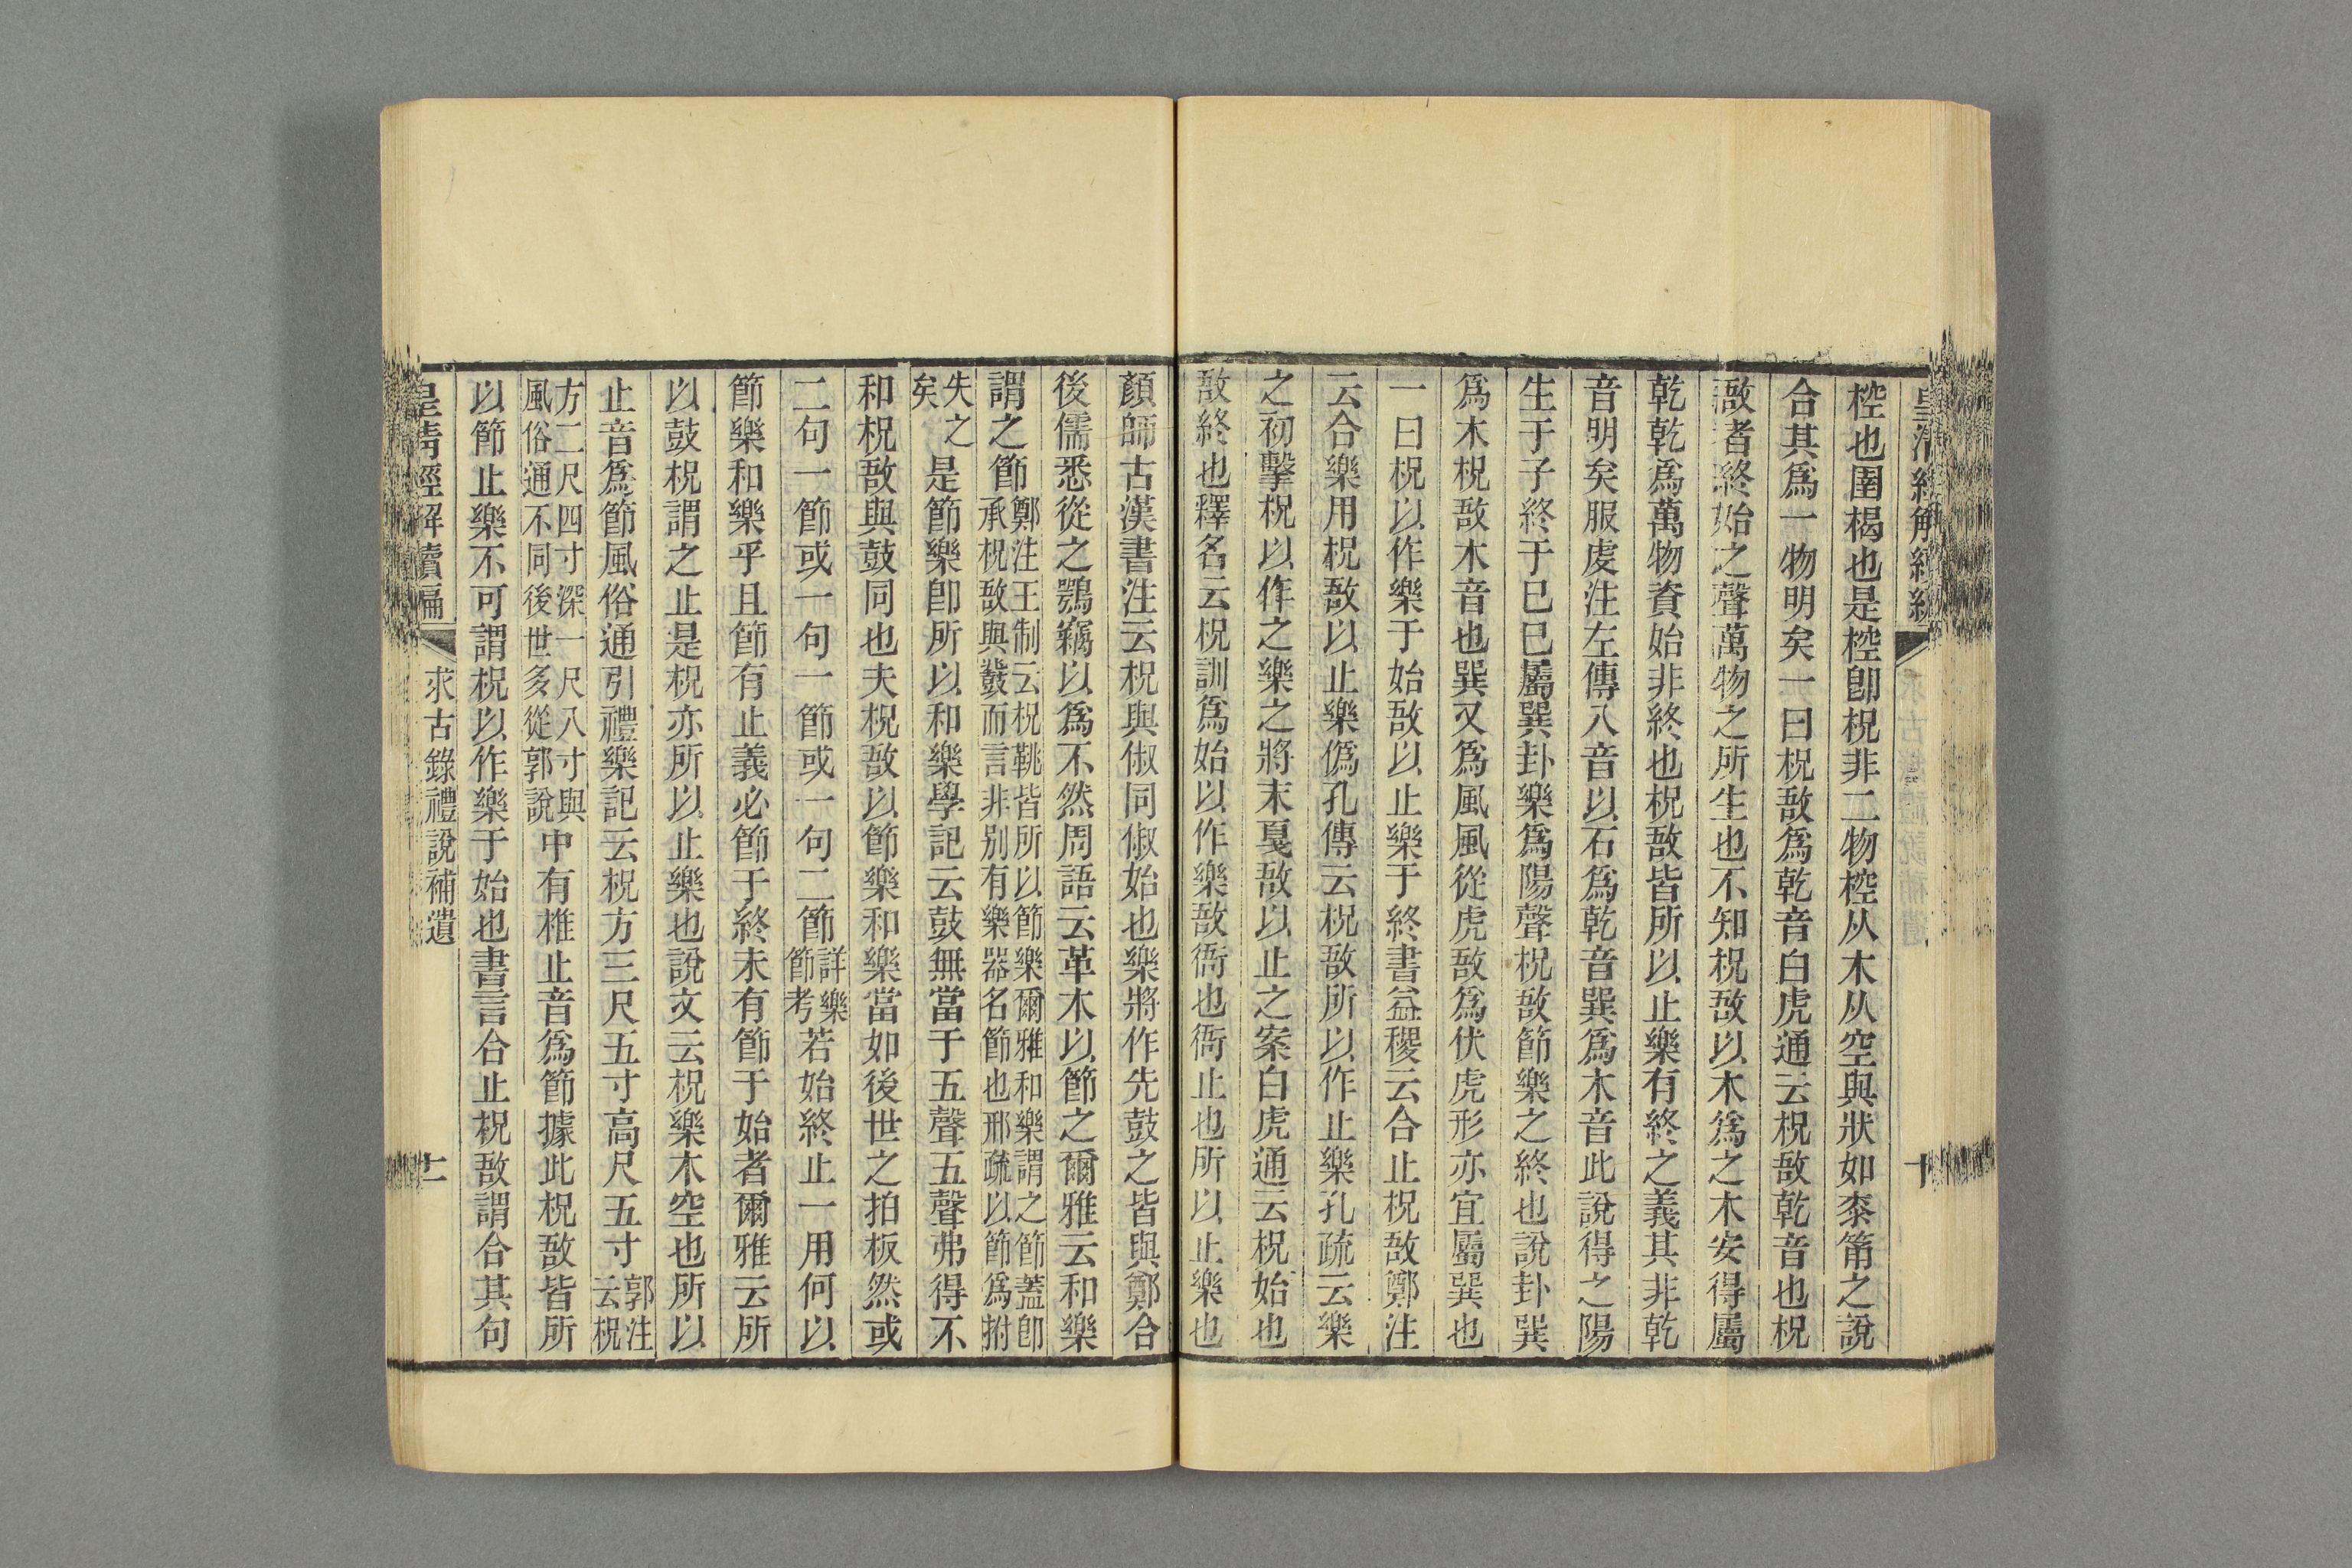 椌也圉楬也是椌卽柷非二物椌从木从空與狀如桼筩之說
合其爲一物明矣一曰柷敔爲乾音白虎通云柷敔乾音也柷
敔者終始之聲萬物之所生也不知柷敔以木爲之木安得屬
乾乾爲萬物資始非終也柷敔皆所以止樂有終之義其非乾
音明矣服虔注左傳八音以石爲乾音巽爲木音此說得之陽
生于子終于巳巳屬巽卦樂爲陽聲柷敔節樂之終也說卦巽
爲木柷敔木音也巽又爲風風從虎敔爲伏虎形亦宜屬巽也
一曰柷以作樂于始敔以止樂于終書益稷云合止柷敔鄭注
云合樂用柷敔以止樂僞孔傳云柷敔所以作止樂孔疏云樂
之初擊柷以作之樂之將末戛敔以止之案白虎通云柷始也
敔終也釋名云柷訓爲始以作樂敔衙也衙止也所以止樂也
顏師古漢書注云柷與俶同俶始也樂將作先鼓之皆與鄭合
後儒悉從之鶚竊以爲不然周語云革木以節之爾雅云和樂
謂之節鄭注王制云柷鞉皆所以節樂爾雅和樂謂之節蓋卽
承柷敔與鼗而言非別有樂器名節也邢疏以節爲拊
失之
矣是節樂卽所以和樂學記云鼓無當于五聲五聲弗得不
和柷敔與鼓同也夫柷敔以節樂和樂當如後世之拍板然或
二句一節或一句一節或一句二節詳樂
節考若始終止一用何以
節樂和樂乎且節有止義必節于終未有節于始者爾雅云所
以鼓柷謂之止是柷亦所以止樂也說文云柷樂木空也所以
止音爲節風俗通引禮樂記云柷方三尺五寸高尺五寸郭注
云柷
方二尺四寸深一尺八寸與
風俗通不同後世多從郭說中有椎止音爲節據此柷敔皆所
以節止樂不可謂柷以作樂于始也書言合止柷敔謂合其句
皇清經解續編
求古錄禮說補遺
十一